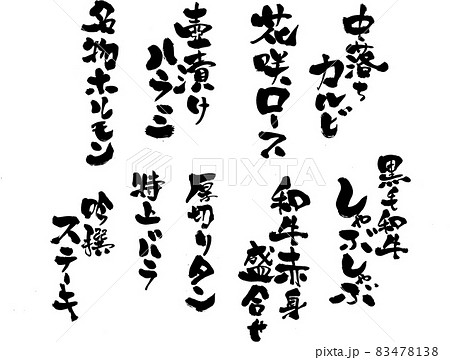 中落ち
カルビ
花咲ロース
壺漬け
ハラミ
名物ホルモン
黒毛和牛
しゃぶしゃぶ
和牛赤身
盛合せ
厚切りタン
特上バラ
吟撰
ステーキ
PIXTA
pixta.jp - 83478138